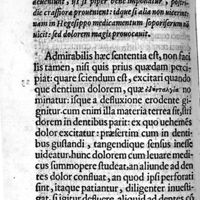 deueniunt, ut si piper bene imponatur, postri-
die crassiora proueniant: idque si alia non uicerint:
nam in Hegesippo medicamentum soporiferum nõ
uicit: sed dolorem magis prouocauit.
Admirabilis hæc sententia est, non faci
lis tamen, nisi quis prius quædam perci-
piat: quare sciendum est, excitari quando
que dentium dolorem, quæ no
minatur: isque a defluxione erodente gi-
gnitur: cum enim illa materia terrea sit, stri
dorem in dentibus parit: ex quo uehemẽs
dolor excitatur: præsertim cum in denti-
bus gustandi, tangendique sensus inne-
uideatur. hunc dolorem cum laueare medi-
cus summopere studeat, an aliunde ad den
tes dolor confluat, an quod ipsi perforati
sint, itaque patiantur, diligenter inuesti-
gat. si igitur defluere aliquid ad dentes cõ